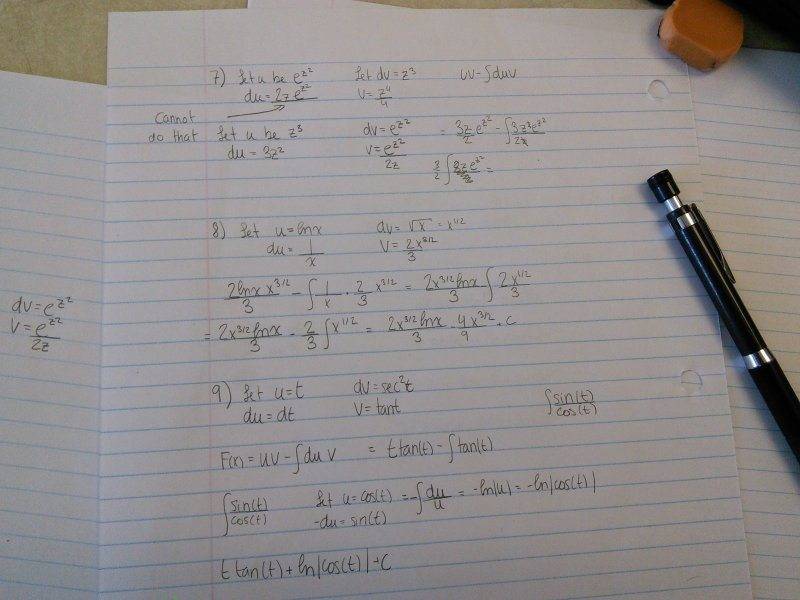 7) Let u be e^z² Let dv = z³ uv - ∫duv
du = 2z e^z² v = z⁴/4
Cannot
do that
Let u be z³ dv = e^z² = 3z/2 e^z² - ∫ 3z²e^z²/2z
du = 3z² v = e^z²/2z
3/2 ∫ =
8) Let u = lnx dv = √x = x^1/2
du = 1/x v = 2x^3/2/3
2lnx x^3/2/3 - ∫ 1/x · 2/3 x^3/2 = 2x^3/2 lnx/3 ∫ 2x^1/2/3
= 2x^3/2 lnx/3 - 2/3 ∫ x^1/2 = 2x^3/2 lnx/3 - 4x^3/2/9 + C
dv = e^z²
v = e^z²/2z
9) Let u = t dv = sec²t ∫ sin(t)/cos(t)
du = dt v = tant
F(x) = uv - ∫du v = t tan(t) - ∫tan(t)
∫ sin(t)/cos(t) Let u = cos(t) = -∫ du/u = -ln|u| = -ln|cos(t)|
-du = sin(t)
t tan(t) + ln|cos(t)| + C